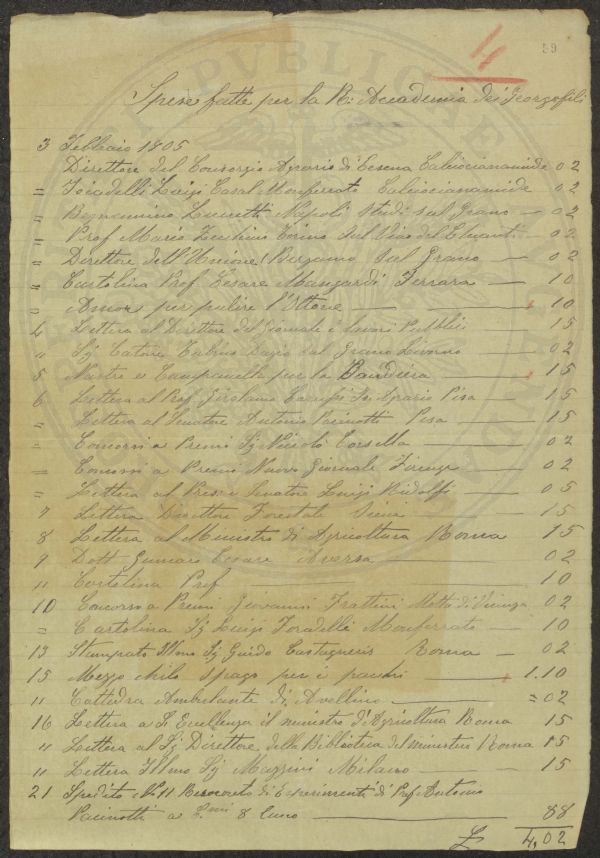 11
59
Spese fatte per la R: Accademia dei Georgofili
3 Febbraio 1905
Direttore del Consorzio Agrario di Cesena Calciocianamide 02
" Luigi Casal Monferrato Calciocianamide 02
" Beniamino Napoli Studi sul Grano — 02
" Prof Mario Torino Sul Vino del — 02
" Direttore dell'Unione Bergamo Sul Grano — 02
" Cartolina Prof Cesare Ferrara — 10
" per pulire l'Ottone — 10
4 Lettera al Direttore del Giornale i lavori Pubblici 15
" Sg Dazio sul Grano Livorno — 02
5 Nastro e Campanella per la Bandiera — 15
6 Lettera al Prof Girolamo Agrario Pisa — 15
" Lettera al Senatore Antonio Pacinotti Pisa — 15
" Concorsi a Premi Sg Niccolò — 02
= Concorsi a Premi Nuovo Giornale Firenze — 02
" Lettera al Pres: e Senatore Luigi Ridolfi — 05
7 Lettera Direttore Forestale — 15
8 Lettera al Ministro di Agricoltura Roma 15
9 Dott Cesare Aversa — 02
" Cartolina Prof — 10
10 Concorso a Premi Giovanni Frattini Motta di Vicenza 02
= Cartolina Sg Luigi Monferrato — 10
13 Stampato Illmo Sg Guido Roma — 02
15 Mezzo chilo Spago per i pacchi — 1.10
" Cattedra Ambulante di Avellino — =02
16 Lettera a S. Eccellenza il ministro d'Agricoltura Roma 15
" Lettera al Sg Direttore della Biblioteca del ministero Roma 15
" Lettera Illmo Sg Mazzini Milano — 15
21 Spedito N. 11 di Esperimenti di Prof Antonio
Pacinotti a — 88
£ 4,02